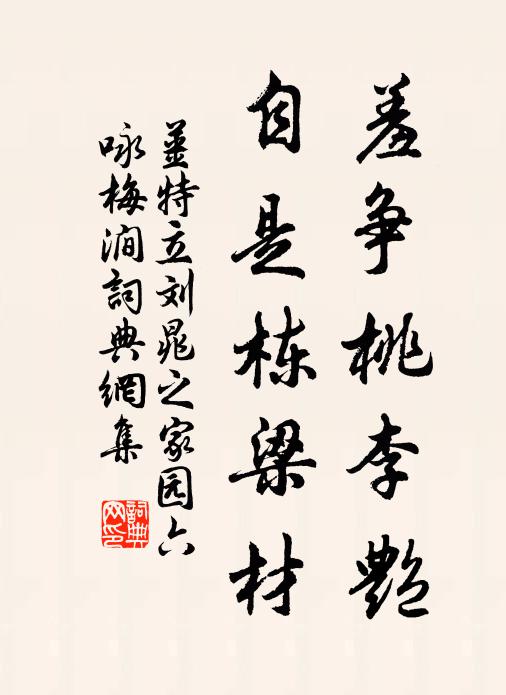 羞争桃李艷
自是栋梁材
姜特立刘晁之家园六
咏梅涧詞典網集
詞典网印